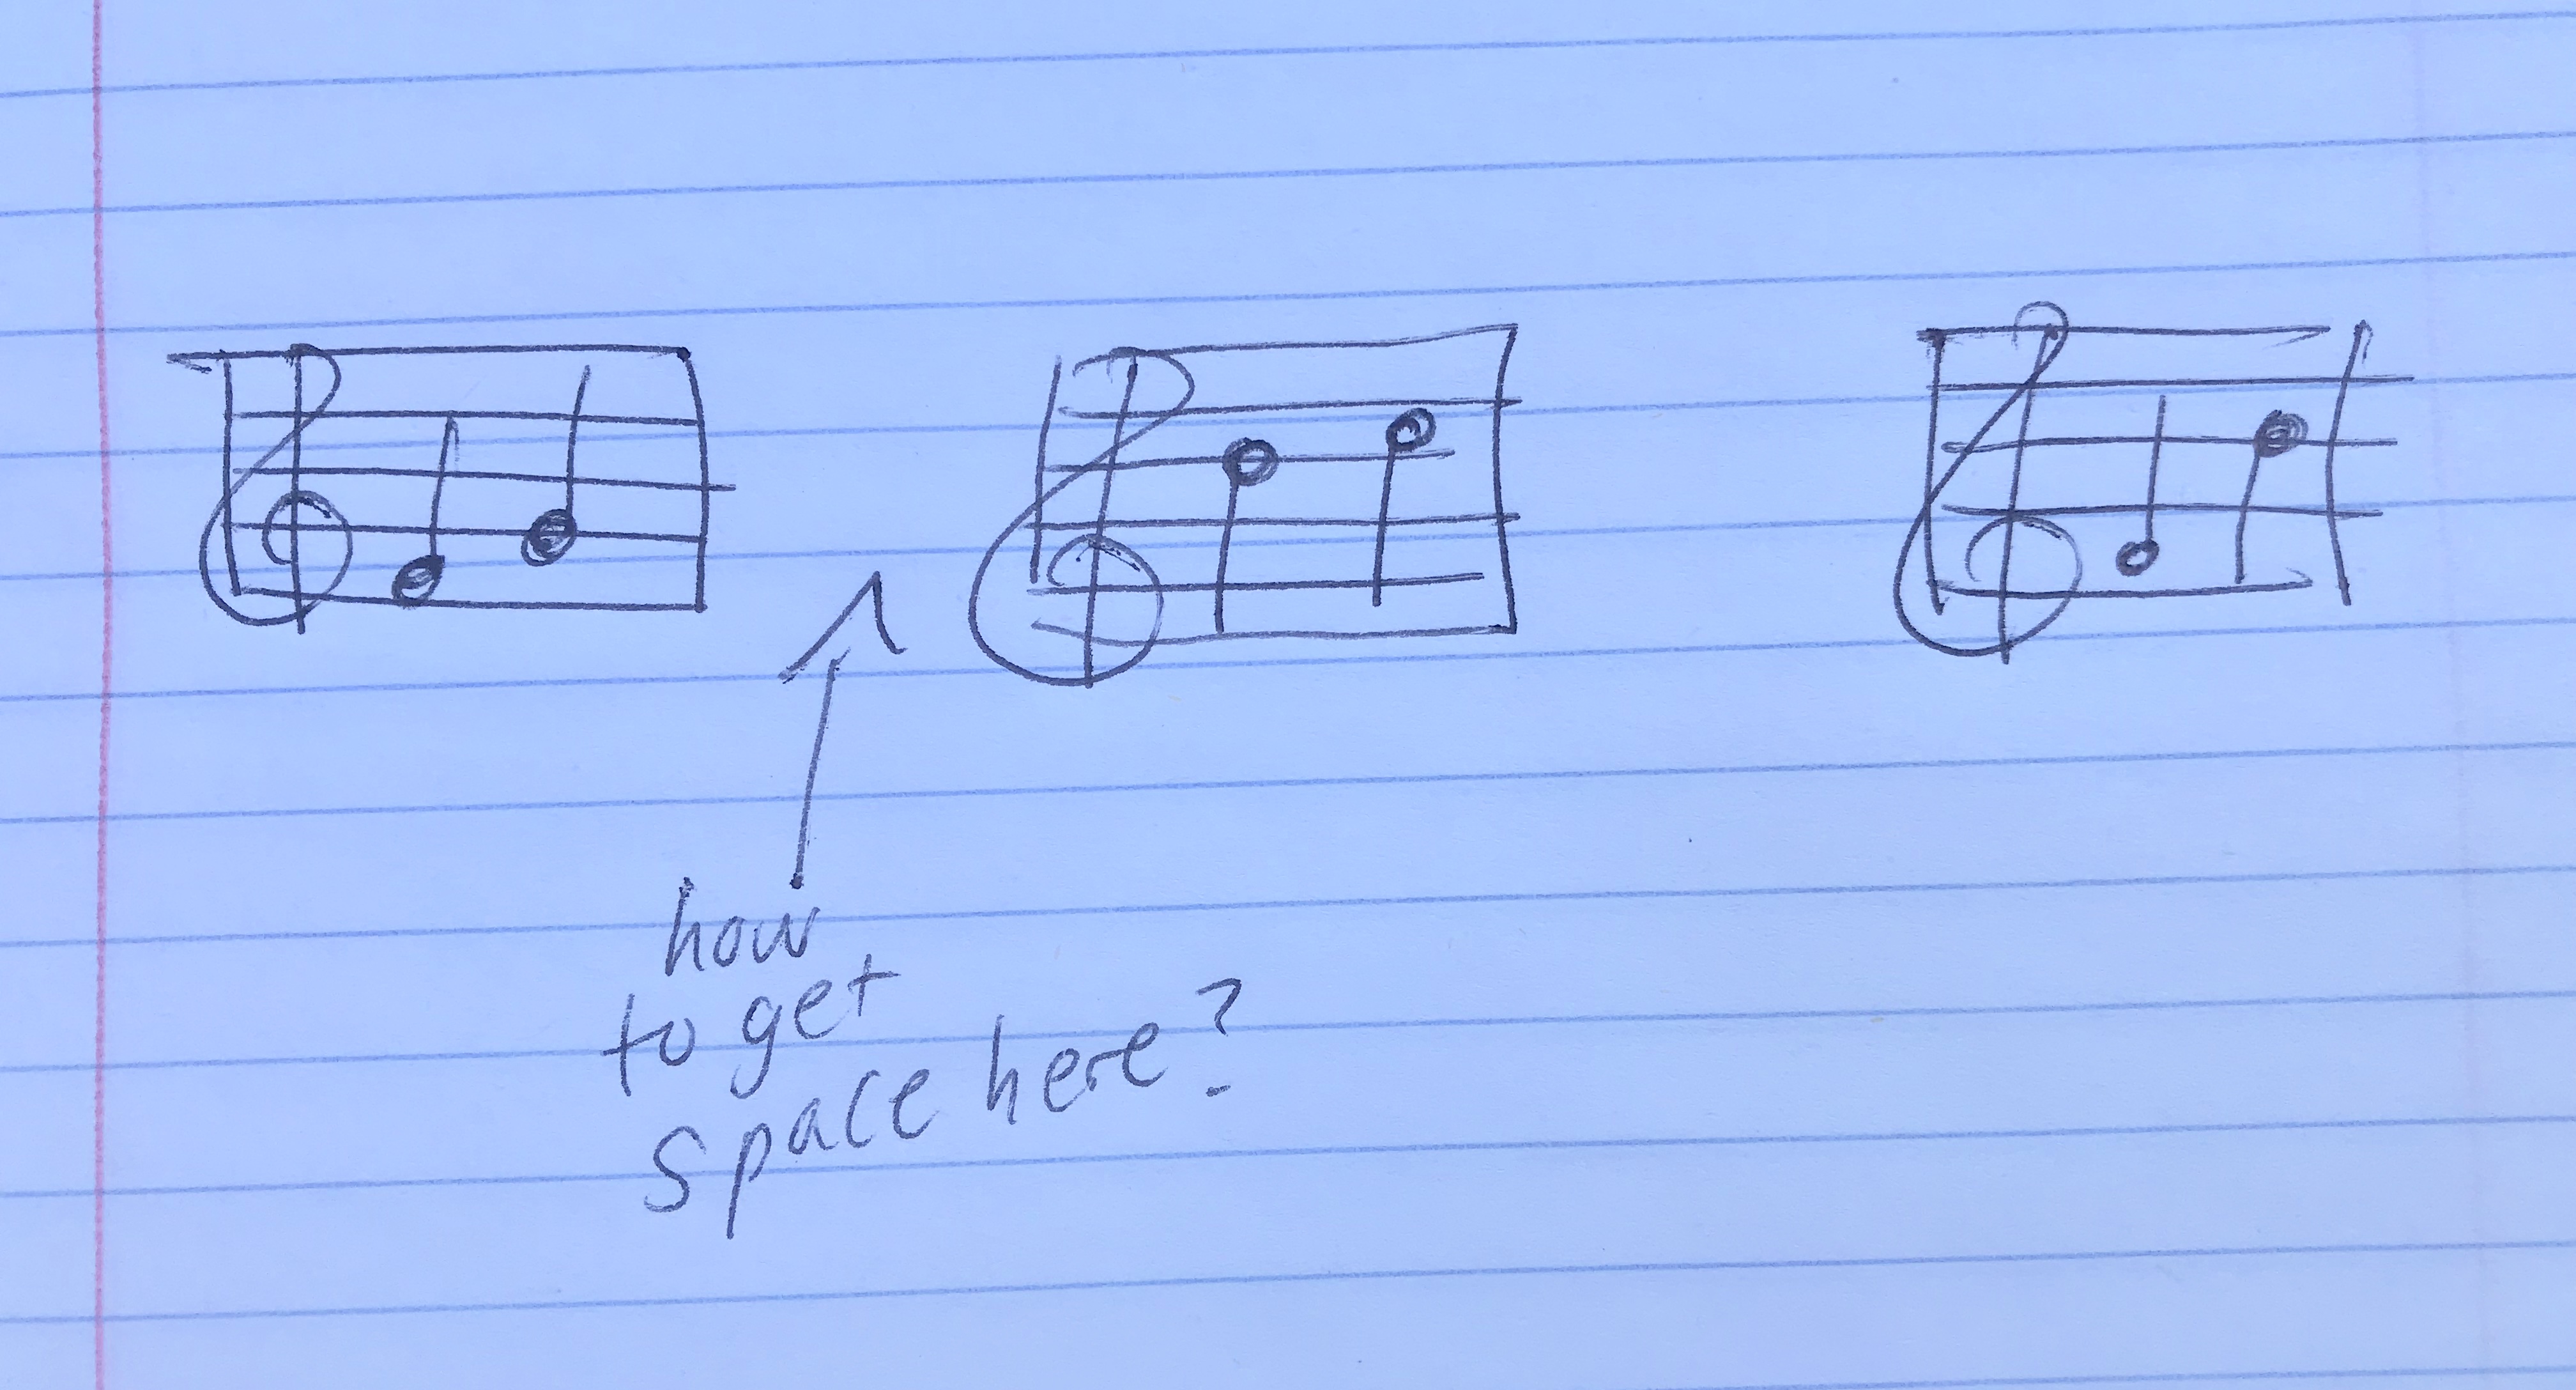 how
to get
space here?